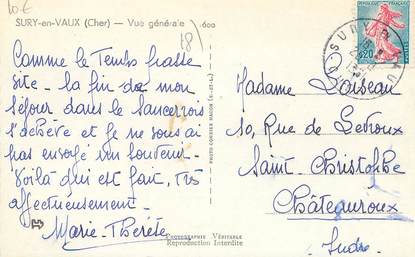 10 €
SURY-en-VAUX (Cher) — Vue générale
600
18)
Comme le Temps passe
vite - la fin de mon
séjour dans le Sancerrois
s'achève et je ne vous ai
pas envoyé un souvenir.
Voilà qui est fait, Très
affectueusement.
Marie-Thérèse
PHOTO COMBIER MACON (S.-et-L.)
PHOTOGRAPHIE VÉRITABLE
Reproduction Interdite
REPUBLIQUE FRANÇAISE
0,20
SURY
Madame Loiseau
10, Rue de Ledroux
Saint-Christophe
Châteauroux
Indre.